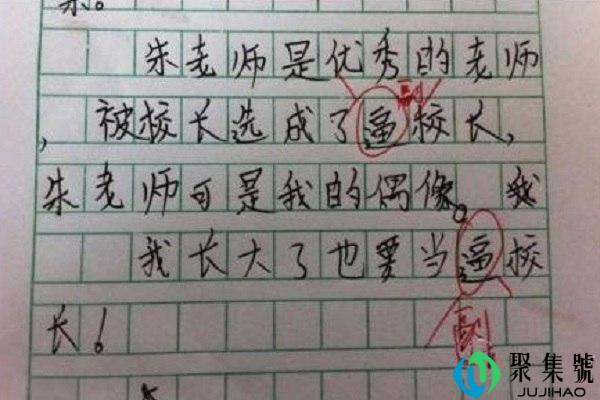 朱老师是优秀的老师
副
,被校长选成了逼校长,
朱老师可是我的偶像。我
我长大了也要当逼校
长!
副
聚集號
JUJIHAO